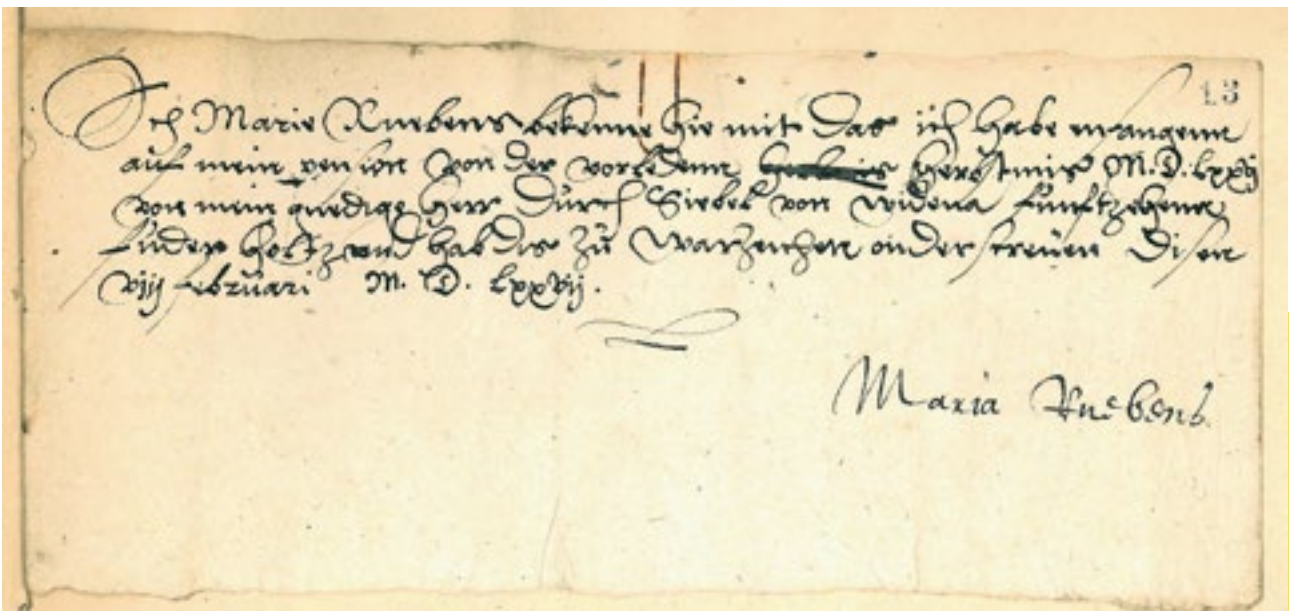 13
Ich Marie Ruebens bekenne hie mit das ich habe enfangenn
auf mein pension von der vorledenn herbstmis M.D.lxxvj
von mein gnedige herr durch Siebel von Widena funftzehenn
fuder holtz und hab dis zu warzeichen onderscreven disen
viij februari M.D.lxxvij.
Maria Ruebens.